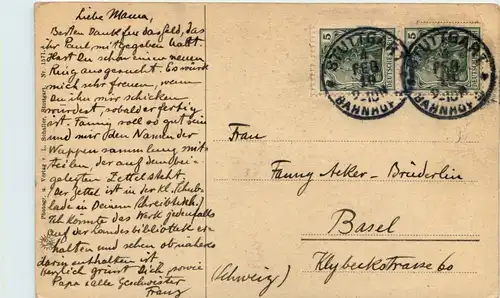 Liebe Mama,
Besten Dank für das Geld, das
ihr Paul mitgegeben hatt.
Hast Du schon einen neuen
Ring ausgesucht. Es würde
mich sehr freuen, wenn
Du ihn mir schicken
würdest, sobald er fertig
ist. Fanny soll so gut sein
und mir den Namen der
Wappensammlung mit-
teilen, der auf dem bei-
gelegten Zettel steht,
(der Zettel ist in der kl. Schub-
lade in Deinem Schreibtisch.)
Ich könnte das Werk jedenfalls
auf der Landesbibliothek er-
halten und sehen ob näheres
darin enthalten ist.
Herzlich grüsst Dich, sowie
Papa & alle Geschwister
Franz
Plänour. u. Verlag v. L. Schaller, Stuttgart.
STUTTGART
FEB
9-10
BAHNHOF
STUTTGART
FEB
9-10
BAHNHOF
5
5
Frau
Fanny Acker-Brüderlin
Basel
Klybeckstrasse 60
(Schweiz)